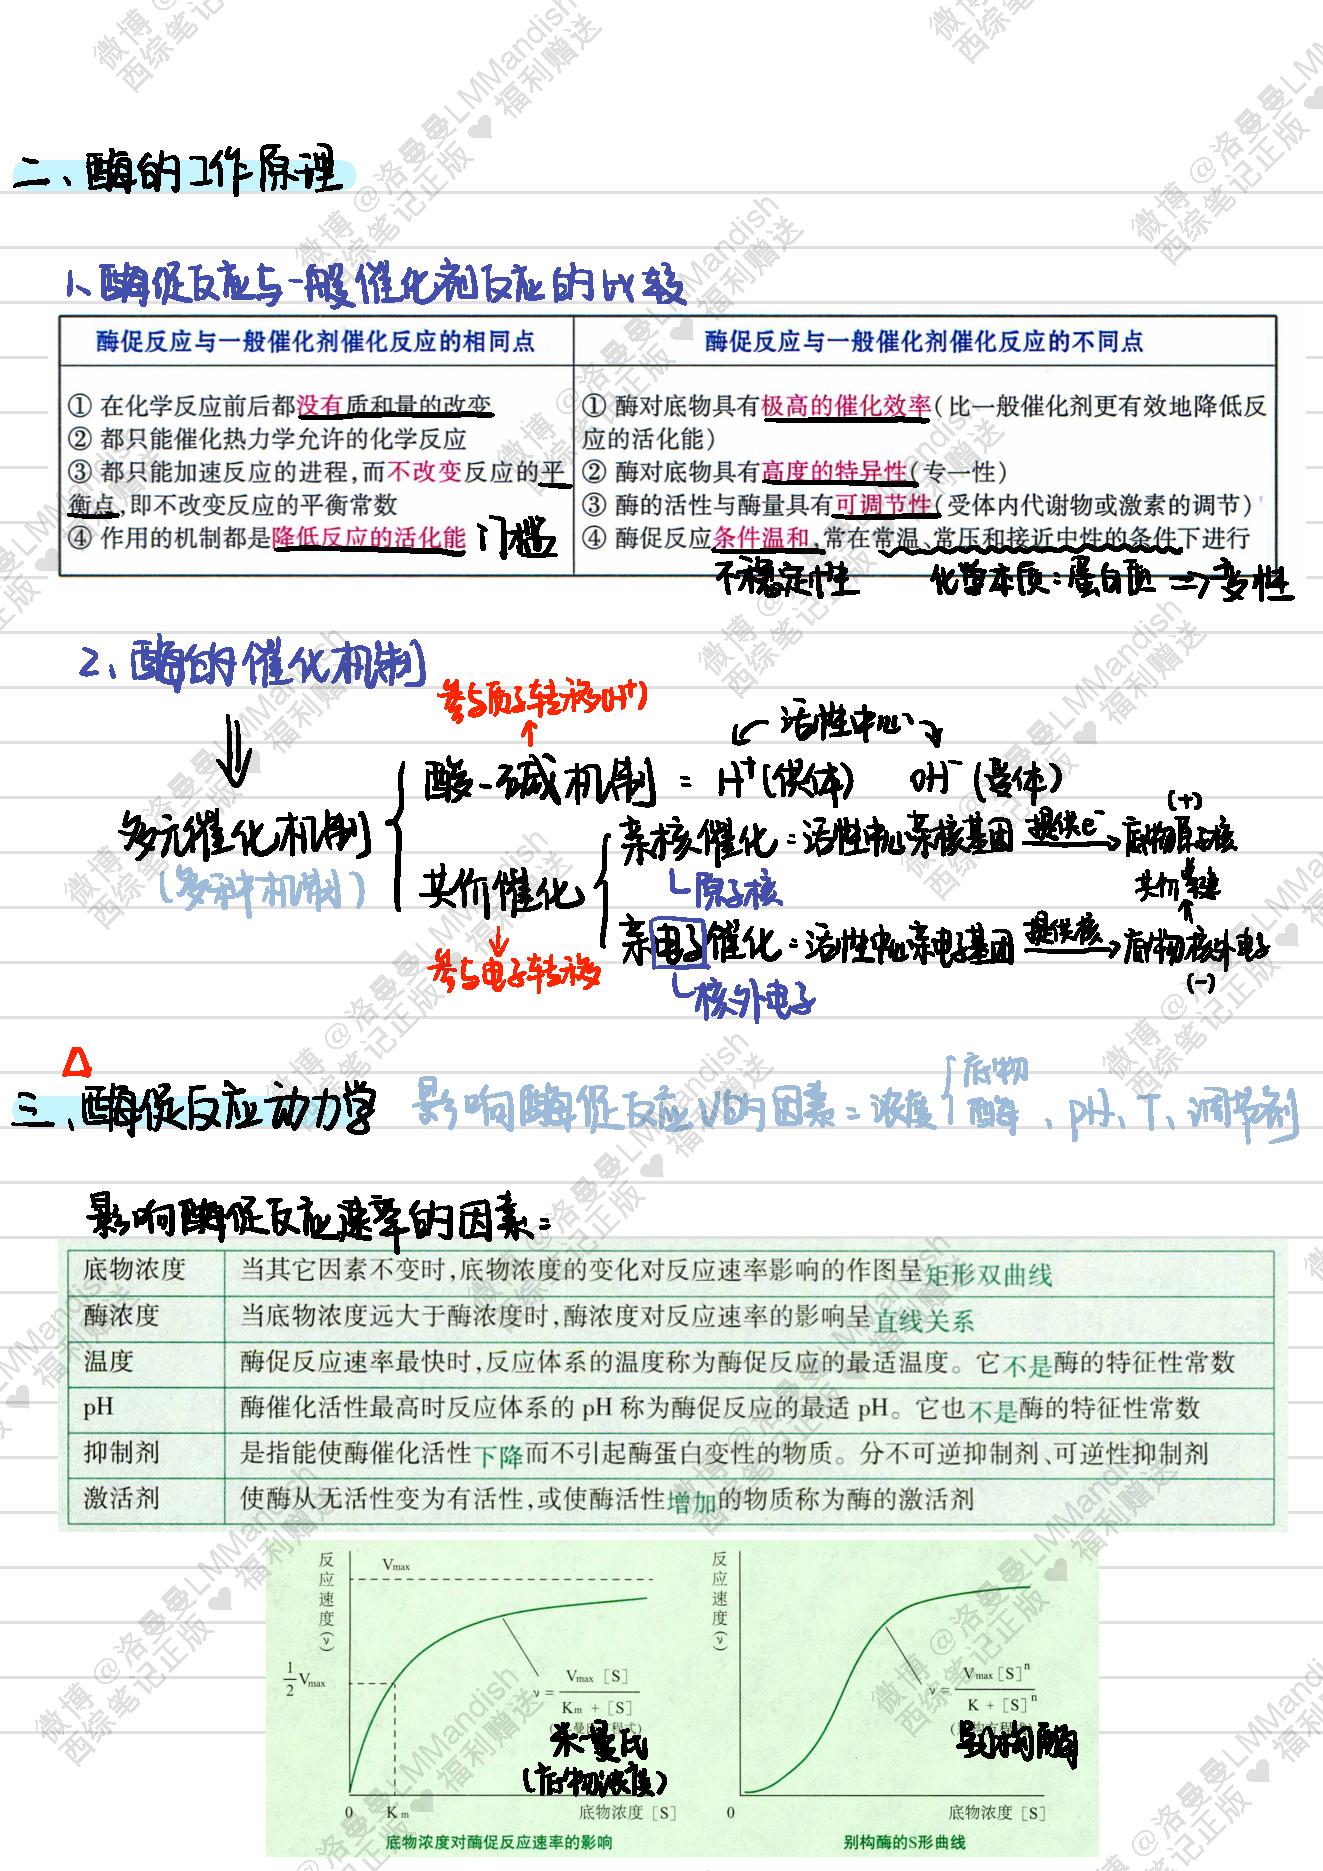 二、酶的工作原理
1、酶促反应与一般催化剂反应的比较
酶促反应与一般催化剂催化反应的相同点
酶促反应与一般催化剂催化反应的不同点
① 在化学反应前后都没有质和量的改变
② 都只能催化热力学允许的化学反应
③ 都只能加速反应的进程,而不改变反应的平
衡点,即不改变反应的平衡常数
④ 作用的机制都是降低反应的活化能 门槛
① 酶对底物具有极高的催化效率(比一般催化剂更有效地降低反
应的活化能)
② 酶对底物具有高度的特异性(专一性)
③ 酶的活性与酶量具有可调节性(受体内代谢物或激素的调节)
④ 酶促反应条件温和,常在常温、常压和接近中性的条件下进行
不稳定性 化学本质:蛋白质 => 变性
2、酶的催化机制
参与质子转移(H⁺)
活性中心
酸-碱机制 = H⁺(供体) OH⁻(受体)
多元催化机制
(多种机制)
共价催化
参与电子转移
亲核催化:活性中心亲核基团 提供e⁻→ 底物原子核
(+)
原子核
共价键
亲电子催化:活性中心亲电子基团 提供核→ 底物核外电子
(-)
核外电子
Δ
三、酶促反应动力学 影响酶促反应V的因素=浓度{底物 酶、pH、T、调节剂
影响酶促反应速率的因素:
底物浓度 当其它因素不变时,底物浓度的变化对反应速率影响的作图呈矩形双曲线
酶浓度 当底物浓度远大于酶浓度时,酶浓度对反应速率的影响呈直线关系
温度 酶促反应速率最快时,反应体系的温度称为酶促反应的最适温度。它不是酶的特征性常数
pH 酶催化活性最高时反应体系的 pH 称为酶促反应的最适 pH。它也不是酶的特征性常数
抑制剂 是指能使酶催化活性下降而不引起酶蛋白变性的物质。分不可逆抑制剂、可逆性抑制剂
激活剂 使酶从无活性变为有活性,或使酶活性增加的物质称为酶的激活剂
反应速度(ν)
Vmax
1/2 Vmax
ν = Vmax [S] / Km + [S]
米曼氏
(底物浓度)
0 Km 底物浓度 [S]
底物浓度对酶促反应速率的影响
反应速度(ν)
ν = Vmax [S]ⁿ / K + [S]ⁿ
别构酶
0 底物浓度 [S]
别构酶的S形曲线
微博 @洛曼曼LMMandish
西综笔记正版 ♥ 福利赠送